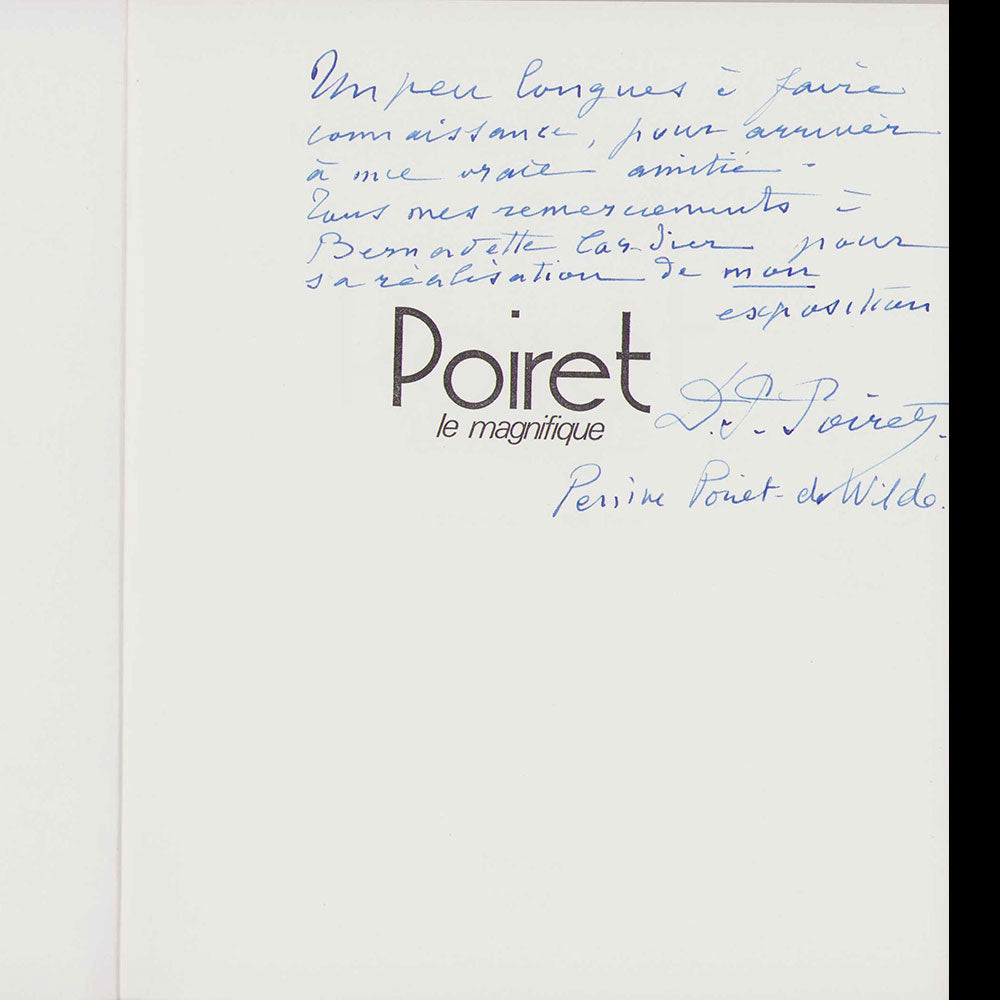 Un peu longues à faire
connaissance, pour arriver
à une vraie amitié -
Tous mes remerciements à
Bernadette pour
sa réalisation de mon
exposition
Poiret
le magnifique
D.P. Poiret.
Perrine Poiret-de Wilde.